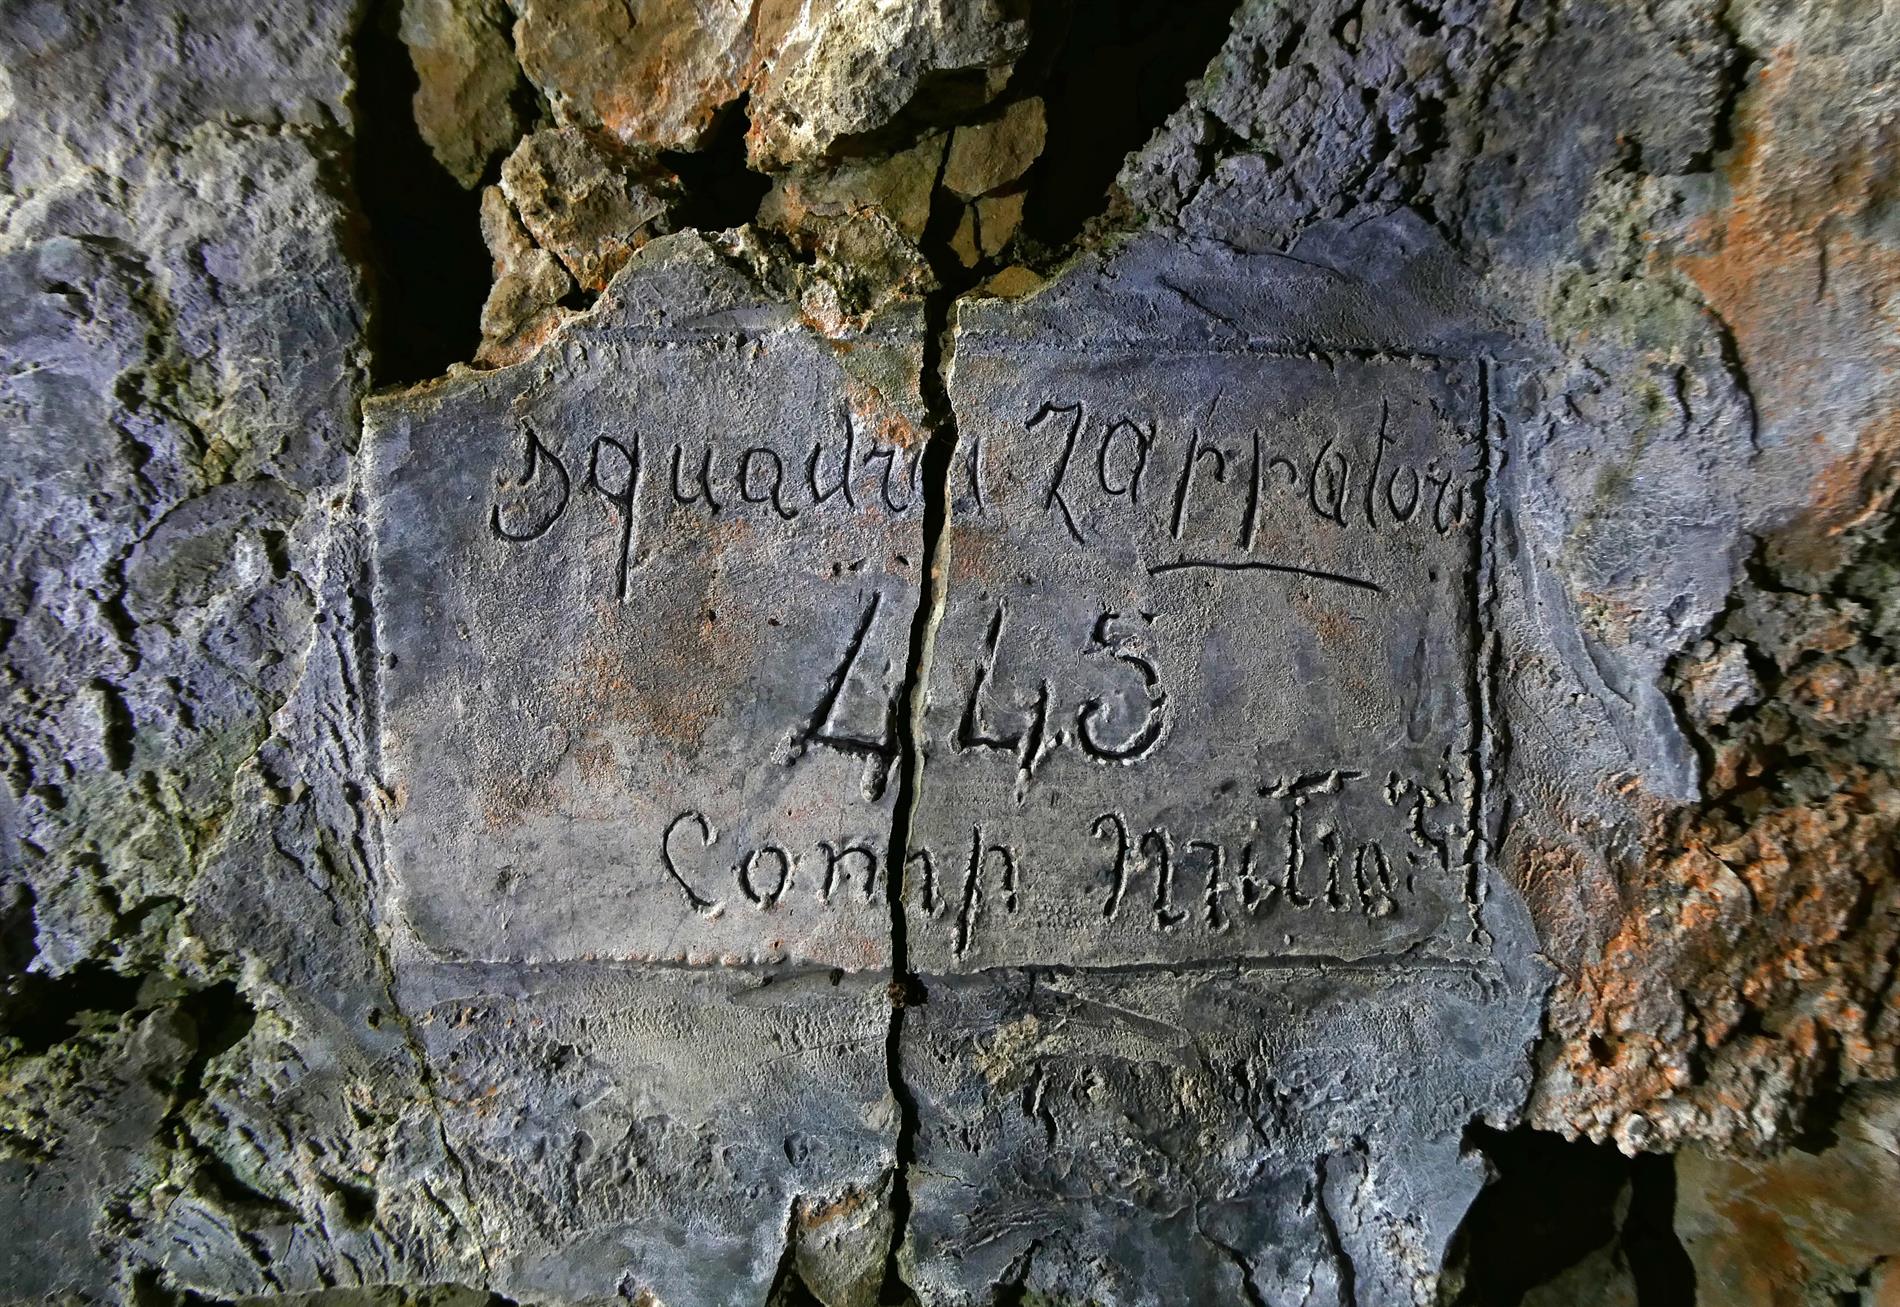 squadra zappatori
445
Comp Mitlio